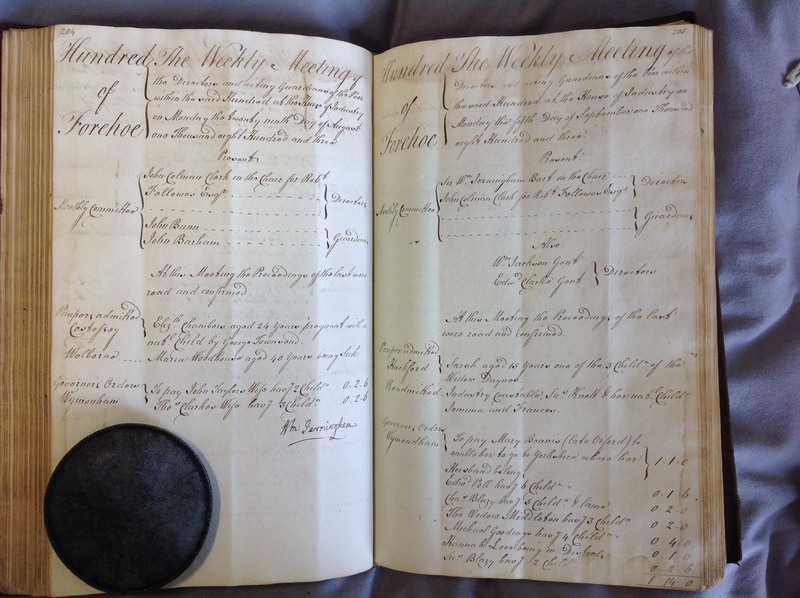 204
Hundred The Weekly Meeting of
of the Directors and acting Guardians of the Poor
within the said Hundred at the House of Industry
Forehoe on Monday the twenty ninth Day of August
one Thousand eight Hundred and three.
Present
John Colman Clark in the Chair for Robt
Followes Esqr
Directors
Monthly Committee
John Bunn
John Barham
Guardians
At this Meeting the Proceedings of the last were
read and confirmed
Paupers admitted
Costessey Elizth Chambers aged 24 Years pregnant with a
natl Child by George Townsend.
Welborne Maria Woodhouse aged 40 Years being Sick
Governors Orders To pay John Taylors Wife havg 2 Childn 0.2.6
Wymondham Thos Clarkes Wife havg 3 Childn 0.2.6
Wm Jerningham
205
Hundred The Weekly Meeting of the
of Directors and acting Guardians of the Poor within
the said Hundred at the House of Industry on
Forehoe Monday the fifth Day of September one Thousand
eight Hundred and three.
Present
Sir Wm Jerningham Bart in the Chair
John Colman Clark for Robt Followes Esqr
Directors
Monthly Committee
Guardians
Also
Wm Jackson Gent
Edwd Clarke Gent
Directors
At this Meeting the Proceedings of the last
were read and confirmed.
Pauper admitted
Hackford Sarah aged 15 Years one of the 3 Childn of the
Widow Daynes
Readmitted Industry Constable, Knott & her natl Childn
Jemima and Frances.
Governors Orders
Wymondham To pay Mary Bonnes (late Orford) to
enable her to go to Yorkshire where her 1-1-0
Husband belongs
Edwd Poll havg 6 Childn 0.1.6
Chas Blazy havg 5 Childn & lame 0-2-0
The Widow Middleton havg 3 Childn 0-2-0
Michael Goodings havg 4 Childn 0 4 0
Hannah being in Distress 0.1.0
Jns Blazy havg 2 Childn 0-2 6
1-14 0